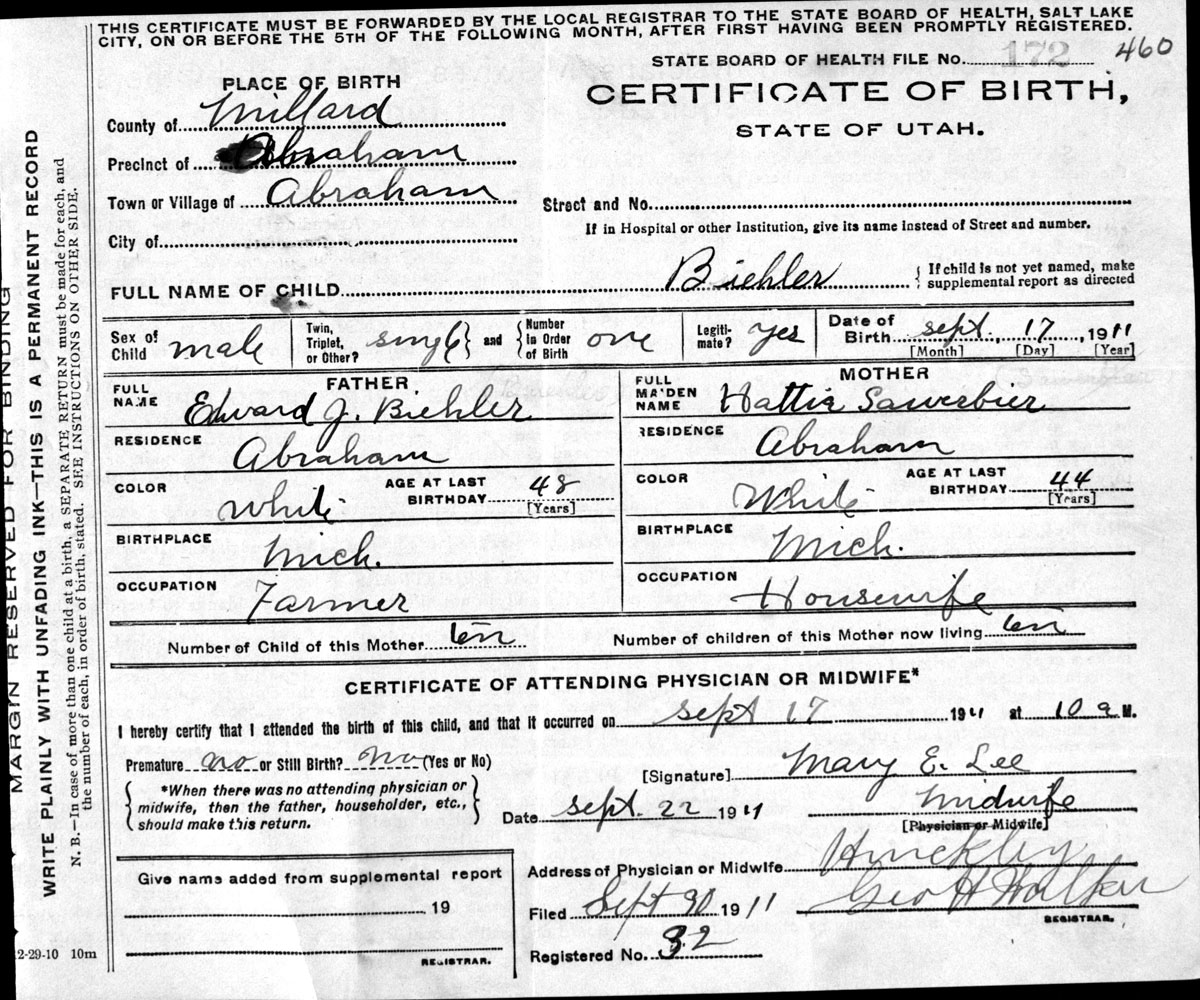 THIS CERTIFICATE MUST BE FORWARDED BY THE LOCAL REGISTRAR TO THE STATE BOARD OF HEALTH, SALT LAKE
CITY, ON OR BEFORE THE 5TH OF THE FOLLOWING MONTH, AFTER FIRST HAVING BEEN PROMPTLY REGISTERED.
STATE BOARD OF HEALTH FILE No. 172 460
PLACE OF BIRTH
CERTIFICATE OF BIRTH,
STATE OF UTAH.
County of Millard
Precinct of Abraham
Town or Village of Abraham
Street and No.
If in Hospital or other Institution, give its name instead of Street and number.
City of
FULL NAME OF CHILD Biehler { If child is not yet named, make
supplemental report as directed
Sex of Child male
Twin, Triplet, or Other? single } and { Number In Order of Birth one
Legiti-mate? yes
Date of Birth sept. 17, 1911
[Month] [Day] [Year]
FATHER
FULL NAME Edward J. Biehler
RESIDENCE Abraham
COLOR White AGE AT LAST BIRTHDAY 48
[Years]
BIRTHPLACE Mich.
OCCUPATION Farmer
MOTHER
FULL MAIDEN NAME Hattie Sawerbier
RESIDENCE Abraham
COLOR White AGE AT LAST BIRTHDAY 44
[Years]
BIRTHPLACE Mich.
OCCUPATION Housewife
Number of Child of this Mother ten Number of children of this Mother now living ten
CERTIFICATE OF ATTENDING PHYSICIAN OR MIDWIFE*
I hereby certify that I attended the birth of this child, and that it occurred on sept 17 1911 at 10 a M.
Premature no or Still Birth? no (Yes or No)
{ *When there was no attending physician or
midwife, then the father, householder, etc.,
should make this return. }
[Signature] Mary E. Lee
Date sept. 22 1911 Midwife
[Physician or Midwife]
Address of Physician or Midwife Hinckley
Filed Sept 30 1911 Geo H Walker
REGISTRAR.
Registered No. 32
Give name added from supplemental report
19
REGISTRAR.
2-29-10 10m
MARGIN RESERVED FOR BINDING
WRITE PLAINLY WITH UNFADING INK—THIS IS A PERMANENT RECORD
N. B.—In case of more than one child at a birth, a SEPARATE RETURN must be made for each, and
the number of each, in order of birth, stated. SEE INSTRUCTIONS ON OTHER SIDE.